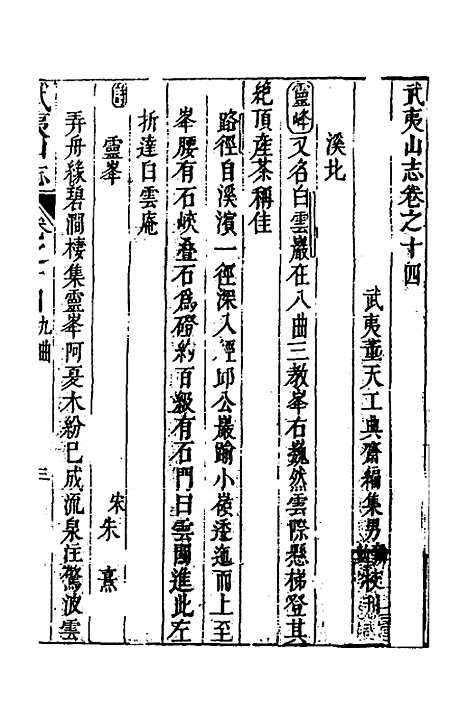 武夷山志卷之十四
武夷董天工典齋編集男 校刊
溪北
靈峰又名白雲巖在八曲三教峯右巍然雲際懸梯登其
絶頂産茶稱佳
路徑自溪濱一徑深入經邱公巖踰小嶺逶迤而上至
峯腰有石峽叠石爲磴約百級有石門曰雲關進此左
折達白雲庵
詩
靈峯
宋朱熹
弄舟緣碧澗棲集靈峯阿夏木紛已成流泉注驚波雲
武夷山志
卷之十四
九曲
三